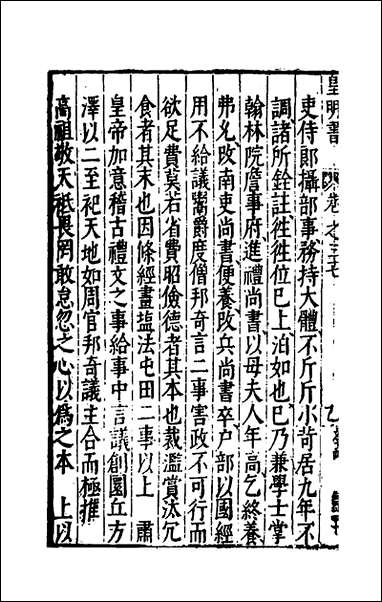 皇明書 卷之三十七
吏侍郎攝部事務持大體不斤斤小苛居九年不
調諸所銓註徃徃位巳上泊如也巳乃兼學士掌
翰林院詹事府進禮尚書以母夫人年高乞終養
弗允改南吏尚書便養改兵尚書卒戸部以國經
用不給議鬻爵度僧邦奇言二事害政不可行而
欲足費莫右省費昭儉德者其本也裁濫賞汰冗
食者其末也因條經畫塩法屯田二事以上 肅
皇帝加意稽古禮文之事給事中言議創圜丘方
澤以二至祀天地如周官邦奇議主合而極推
高祖敬天祗畏罔敢怠忽之心以爲之本 上以